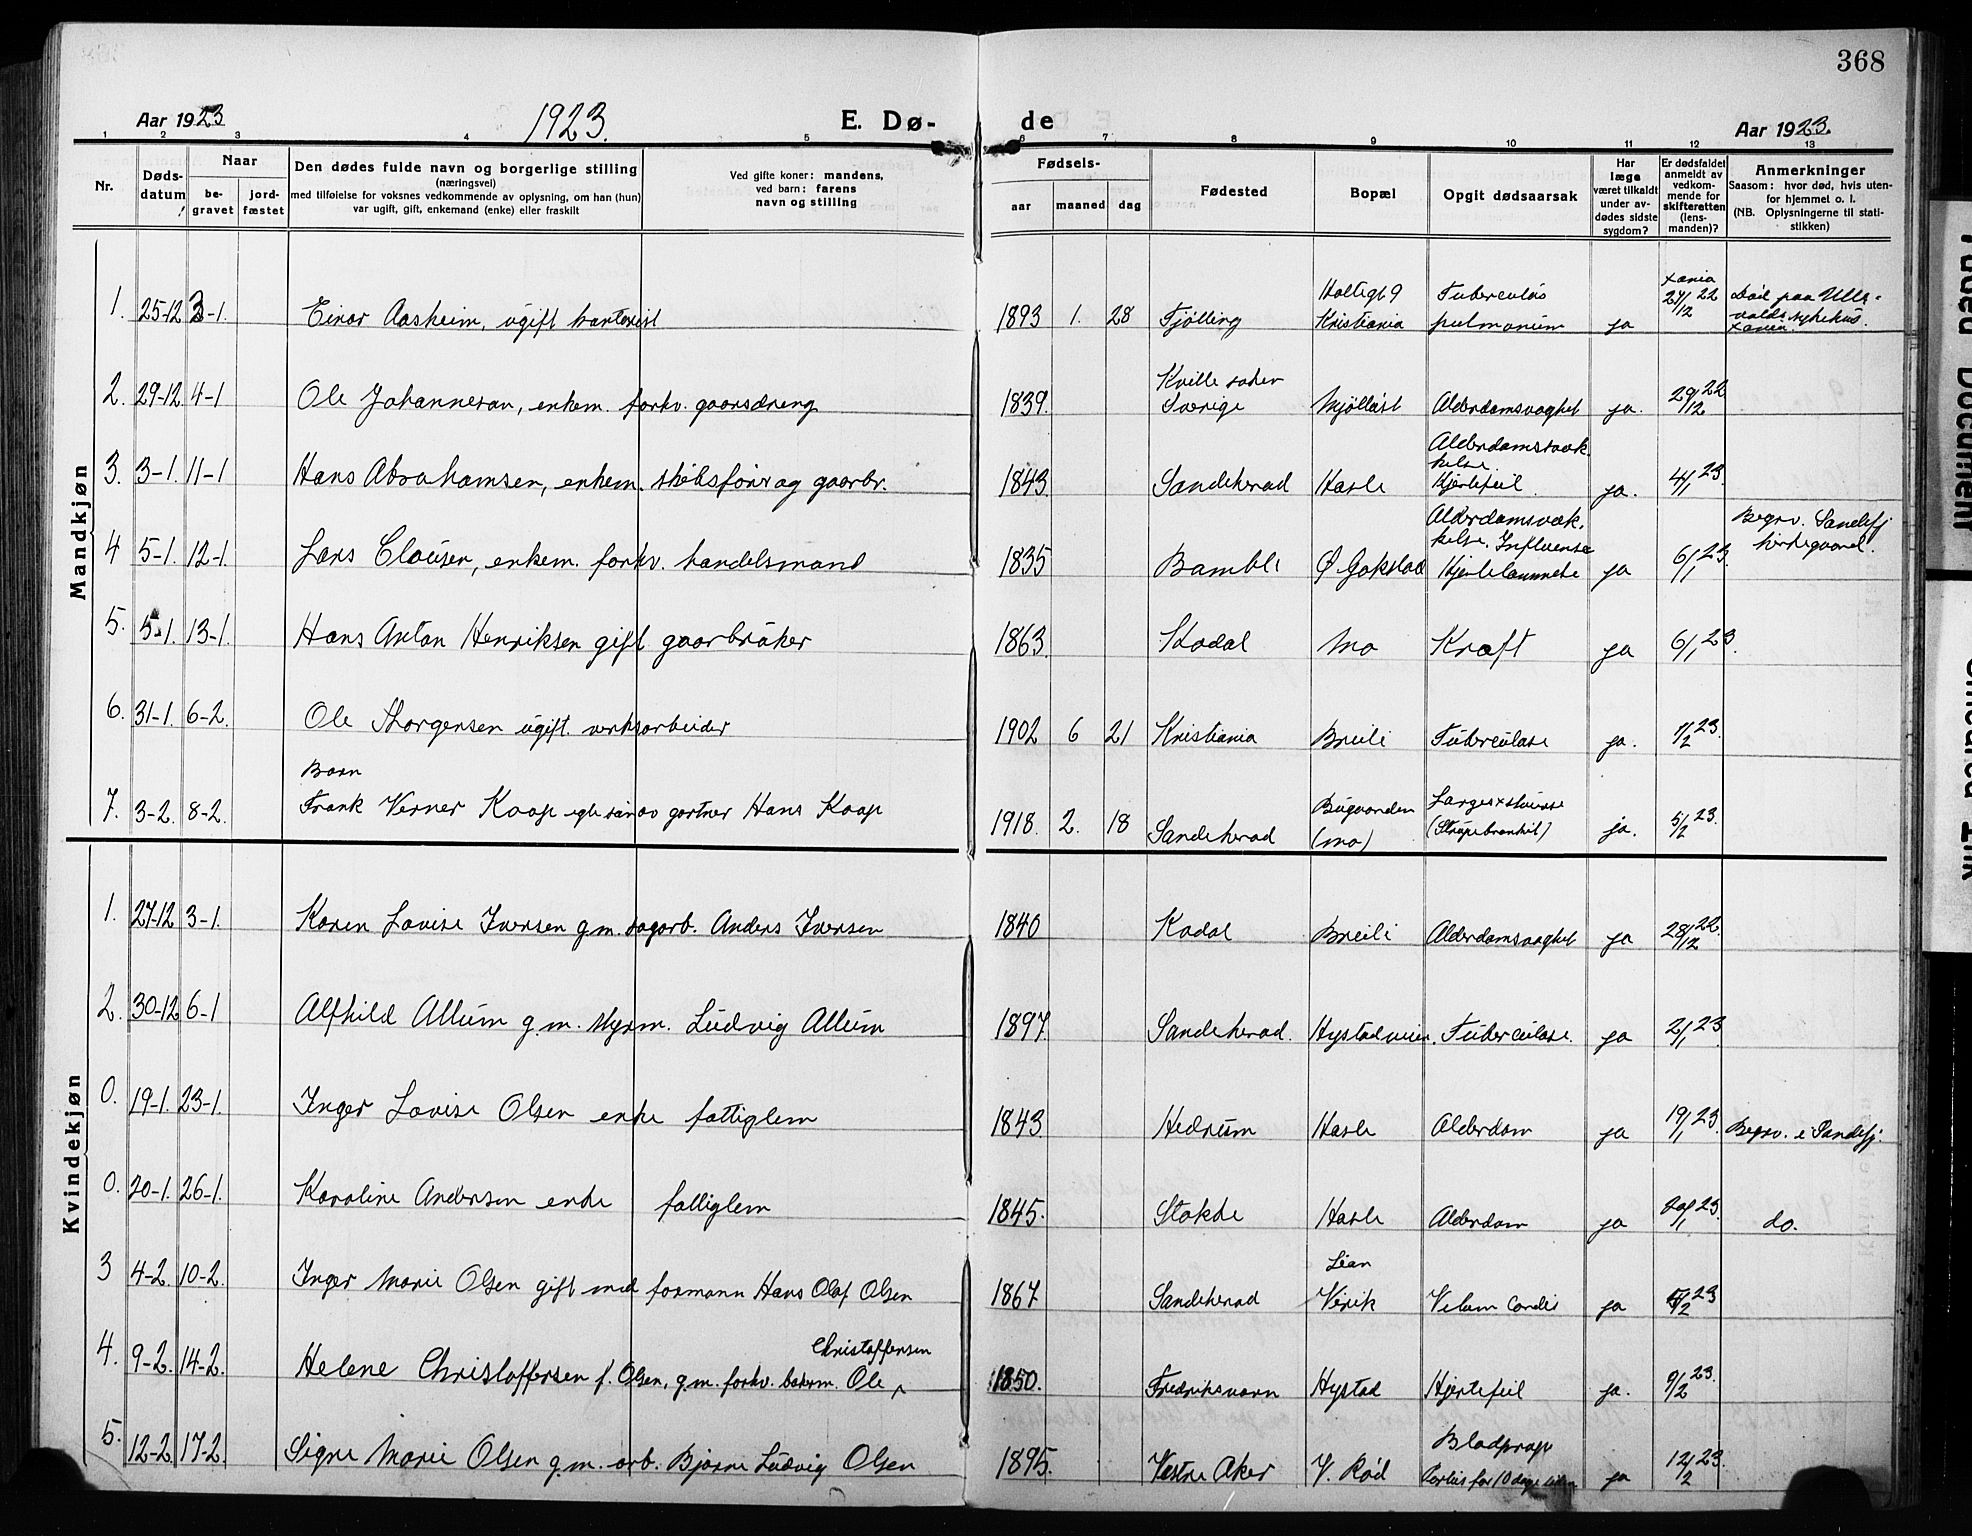 368
Aar 1923
1923.
E. Dø-
de
Aar 1923.
1 2 3 4 5 6 7 8 9 10 11 12 13
Nr.
Døds-
datum
Naar
be-
gravet
jord-
fæstet
Den dødes fulde navn og borgerlige stilling
(næringsvei)
med tilføielse for voksnes vedkommende av oplysning, om han (hun)
var ugift, gift, enkemand (enke) eller fraskilt
Ved gifte koner: mandens,
ved barn: farens
navn og stilling
Fødsels-
aar maaned dag
Fødested
Bopæl
Opgit dødsaarsak
Har
læge
været tilkaldt
under av-
dødes sidste
sygdom?
Er dødsfaldet
anmeldt av
vedkom-
mende for
skifteretten
(lens-
manden)?
Anmerkninger
Saasom: hvor død, hvis uten-
for hjemmet o. l.
(NB. Oplysningerne til stati-
stikken)
Mandkjøn
xania
Holtegt 9 Tuberculos 27/12 22 Død paa Ulle-
1. 25-12 3-1. Einar Aasheim, ugift kontorist 1893 1. 28 Fjölling Kristiania pulmonum ja valds sykehus
xania.
Kville sokn
2. 29-12 4-1 Ole Johannesen, enkem. forhv. gaarsdreng 1839. Sverige Mjölløst Alderdomsvaghet ja. 29/12 22
Alderdomsvæk-
kelse.
3. 3-1. 11-1 Hans Abrahamsen, enkem. skibsförer og gaarbr. 1843. Sandeherad Hasle Hjertefeil ja. 4/1 23
Alderdomsvæk. Begr. Sandefj
kelse. Influensa kirkegaard.
4 5-1. 12-1. Lars Clausen, enkem. forhv. handelsmand 1835 Bamble Ø Gokstad Hjertelammelse ja 6/1 23.
5. 5-1. 13-1. Hans Anton Henriksen gift gaarbruker 1863. Kodal Mo Kræft ja 6/1 23.
6. 31-1. 6-2. Ole Thorgersen ugift. verksarbeider 1902 6 21 Kristiania Breili Tuberculose ja. 1/2 23.
Barn
7. 3-2. 8-2. Frank Verner Kaap egte søn av gartner Hans Kaap 1918. 2. 18 Sandeherad Bugaarden
(Mo) (Strupebronkit) ja. 5/2 23.
Kvindekjøn
1. 27-12 3-1. Karen Lovise Iversen g.m. sagarb. Anders Iversen 1840 Kodal Breili Alderdomsvaghet ja 28/12 22.
2. 30-12 6-1 Alfhild Allum g.m. styrm. Ludvig Allum 1897. Sandeherad. Hystadveien. Tuberculose. ja 2/1 23.
0. 19-1. 23-1. Inger Lovise Olsen enke fattiglem 1843. Hedrum Hasle Alderdom ja 19/1 23. Begr. i Sandefj.
0. 20-1. 26-1. Karoline Andersen enke fattiglem 1845. Stokke Hasle Alderdom ja 20/1 23. do.
Lian
3 4-2. 10-2. Inger Marie Olsen gift med formann Hans Olaf Olsen 1867 Sandeherad Virik Vitium Cordis ja 5/2 23
Christoffersen
4. 9-2. 14-2. Helene Christoffersen f. Olsen, g.m. forhv. bakerm. Ole 1850. Fredriksvern Hystad Hjertefeil ja. 9/2 23.
Blodpropp
5. 12-2. 17-2. Signe Marie Olsen g.m. arb. Bjarne Ludvig Olsen 1895. Vestre Aker V. Rød Partus for 10 dage siden ja 12/2 23.